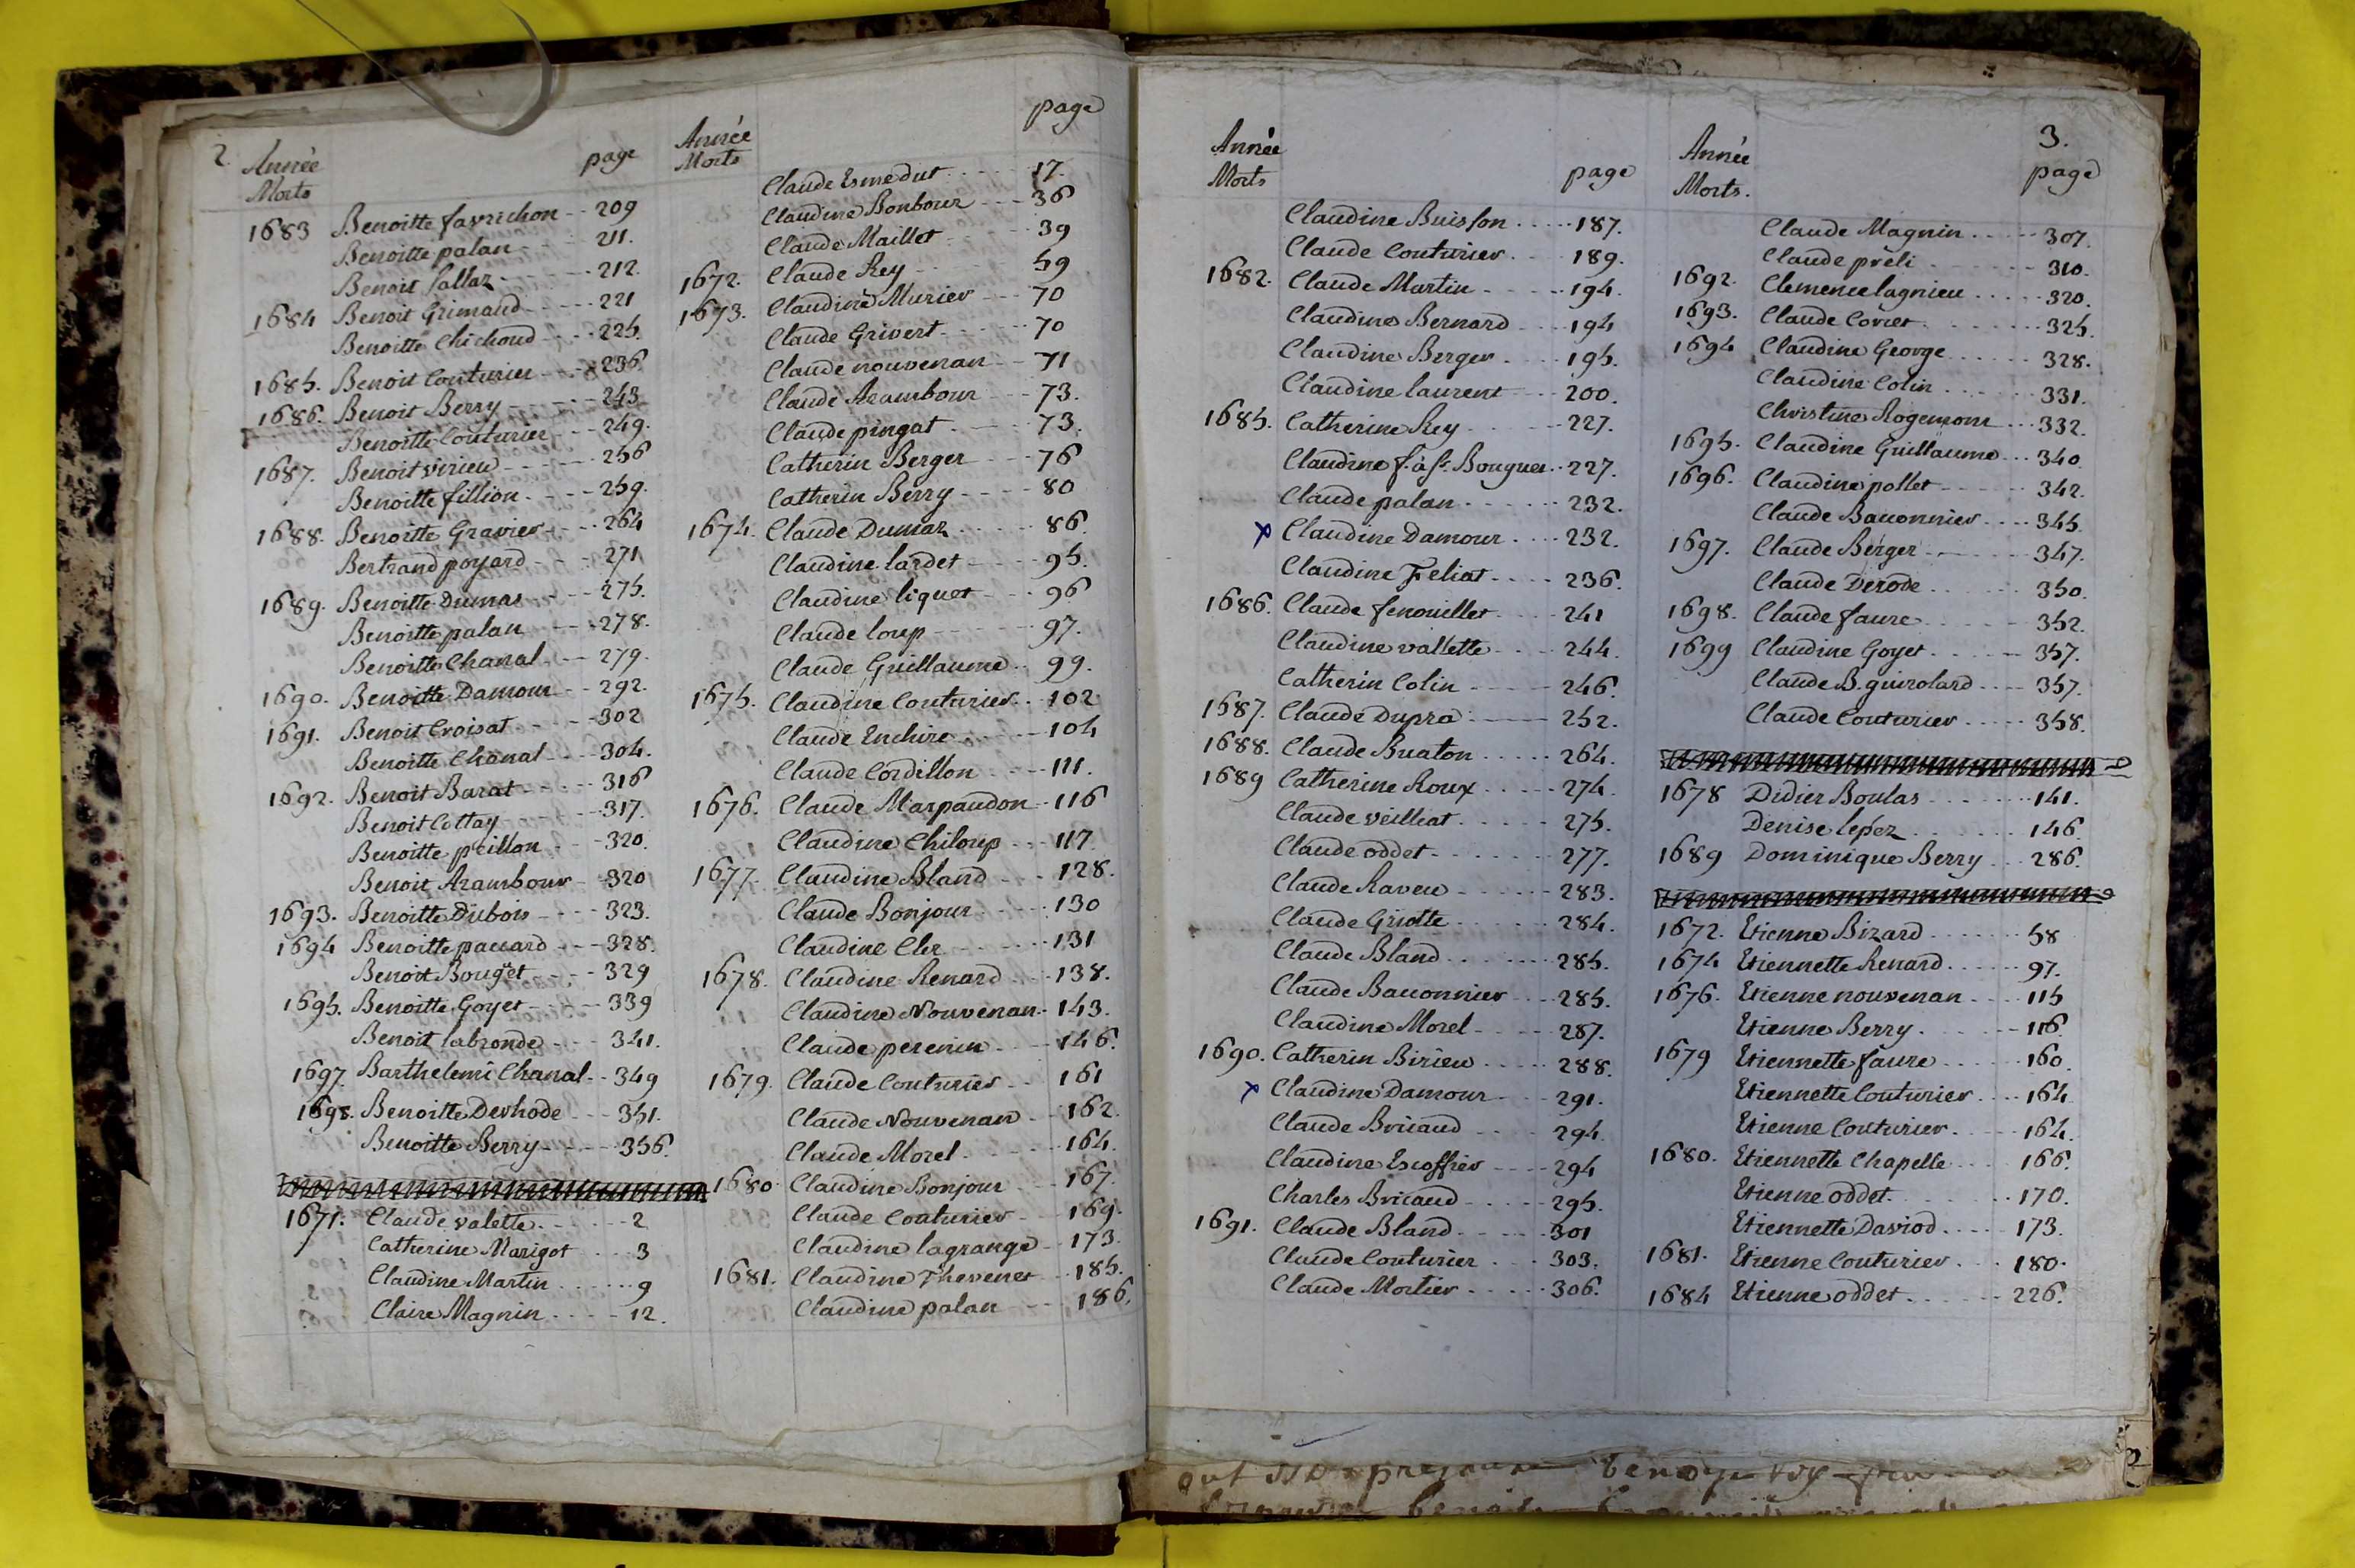 2.
Année Morts page
1683 Benoitte favrichon 209
Benoitte palan 211.
Benoit Sallaz 212.
1684 Benoit Grimaud 221
Benoitte Chichoud 225.
1685. Benoit Couturier 236
1686. Benoit Berry 243
Benoitte Couturier 249.
1687. Benoit virieu 256
Benoitte fillion 259.
1688. Benoitte Gravier 264
Bertrand poyard 271
1689. Benoitte Dumas 275.
Benoitte palan 278.
Benoitte Chanal 279.
1690. Benoitte Damour 292.
1691. Benoit Croisat 302
Benoitte Chanal 304.
1692. Benoit Barat 316
Benoit Cottay 317.
Benoitte peillon 320.
Benoit Arambour 320
1693. Benoitte Dubois 323.
1694 Benoitte paccard 328.
Benoit Bouget 329
1695. Benoitte Goyet 339
Benoit labronde 341.
1697. Barthelemi Chanal 349
1698. Benoitte Derhode 351.
Benoitte Berry 356.
1671. Claude valette 2
Catherine Marigot 3
Claudine Martin 9
Claire Magnin 12.
Année Morts page
Claude Esmedut 17.
Claudine Bonbour 36
Claude Maillet 39
1672. Claude Rey 59
1673. Claudine Murier 70
Claude Grivert 70
Claude nouvenan 71
Claude Arambour 73.
Claude pingat 73.
Catherin Berger 76
Catherin Berry 80
1674. Claude Dumaz 86.
Claudine lardet 95.
Claudine liquet 96
Claude loup 97.
Claude Guillaume 99.
1675. Claudine Couturier 102
Claude Enchire 104
Claude Cordillon 111.
1676. Claude Marpaudon 116
Claudine Chiloup 117
1677. Claudine Bland 128.
Claude Bonjour 130
Claudine Cler 131
1678. Claudine Renard 138.
Claudine Nouvenan 143.
Claude perenin 146.
1679. Claude Couturier 161
Claude Nouvenan 162.
Claude Morel 164.
1680 Claudine Bonjour 167.
Claude Couturier 169.
Claudine lagrange 173.
1681. Claudine Thevenet 185.
Claudine palan 186.
Année Morts page
Claudine Buisson 187.
Claude Couturier 189.
1682. Claude Martin 194.
Claudine Bernard 194
Claudine Berger 195.
Claudine laurent 200.
1685. Catherine Rey 227.
Claudine f. à fr. Bouguer 227.
Claude palan 232.
x Claudine Damour 232.
Claudine Feliat 236.
1686. Claude fenouillet 241
Claudine vallette 244.
Catherin Colin 246.
1687. Claude Dupra 252.
1688. Claude Buaton 264.
1689 Catherine Roux 274.
Claude veilliat 275.
Claude oddet 277.
Claude Raveu 283.
Claude Griotte 284.
Claude Bland 285.
Claude Bauonnier 285.
Claudine Morel 287.
1690. Catherin Birieu 288.
x Claudine Damour 291.
Claude Bricaud 294.
Claudine Escoffier 294
Charles Bricaud 295.
1691. Claude Bland 301
Claude Couturier 303.
Claude Mortier 306.
3.
Année Morts. page
Claude Magnin 307.
Claude preli 310.
1692. Clemence lagnieu 320.
1693. Claude Corcet 325.
1694 Claudine George 328.
Claudine Colin 331.
Christine Rogemont 332.
1695. Claudine Guillaume 340
1696. Claudine pollet 342.
Claude Bauonnier 345.
1697. Claude Berger 347.
Claude Derode 350.
1698. Claude faure 352.
1699 Claudine Goyet 357.
Claude B. guirolard 357.
Claude Couturier 358.
1678 Didier Boulas 141.
Denise lepez 146.
1689 Dominique Berry 286.
1672. Etienne Bizard 58
1674 Etiennette Renard 97.
1676. Etienne nouvenan 115
Etienne Berry 116.
1679 Etiennette faure 160.
Etiennette Couturier 164
Etienne Couturier 164.
1680. Etiennette Chapelle 166.
Etienne oddet 170.
Etiennette Daviod 173.
1681. Etienne Couturier 180.
1684 Etienne oddet 226.